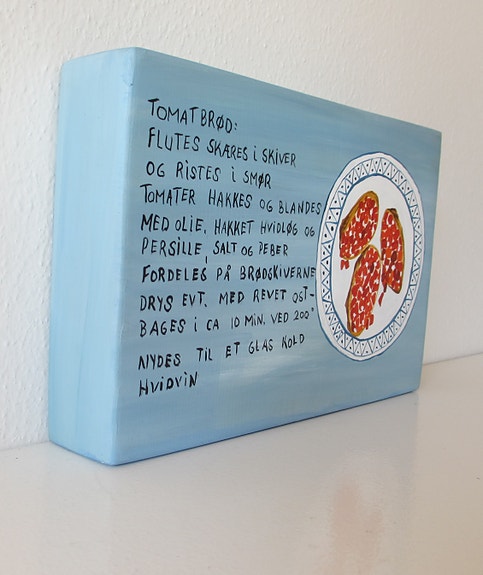 TOMATBRØD:
FLUTES SKÆRES I SKIVER
OG RISTES I SMØR
TOMATER HAKKES OG BLANDES
MED OLIE, HAKKET HVIDLØG OG
PERSILLE, SALT OG PEBER
FORDELES PÅ BRØDSKIVERNE
DRYS EVT. MED REVET OST-
BAGES I CA 10 MIN. VED 200°
NYDES TIL ET GLAS KOLD
HVIDVIN